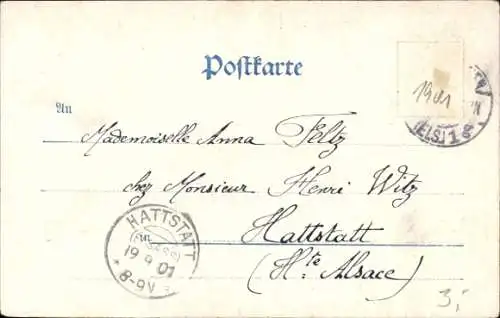 Postkarte
1901
(ELS.) 1 g
An
Mademoiselle Anna Feltz
chez Monsieur Henri Witz
in
Hattstatt
(Hte Alsace)
HATTSTATT
19 9 01
* 8-9V *
3,-